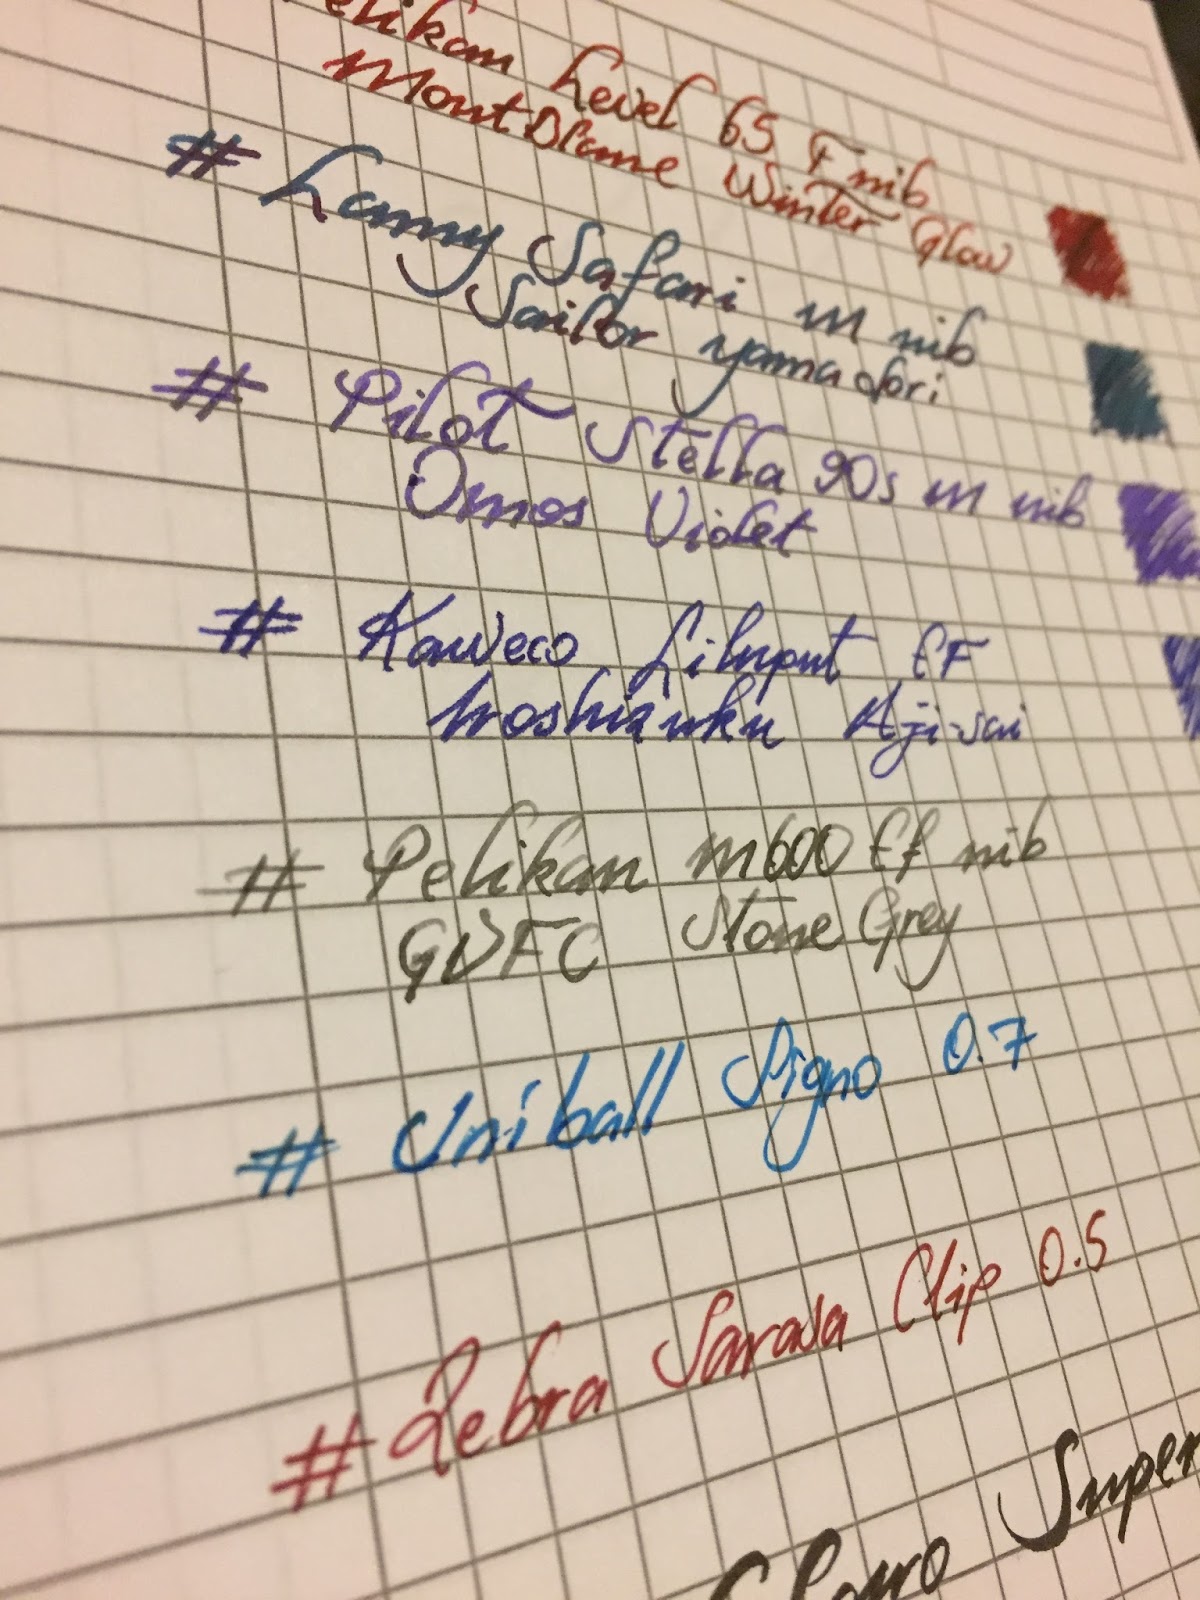 Pelikan Level 65 F nib
MontBlanc Winter Glow
# Lamy Safari M nib
Sailor yama dori
# Pilot Stella 90s M nib
Omas Violet
# Kaweco Liliput EF
Iroshizuku Aji-sai
# Pelikan M600 EF nib
GVFC Stone Grey
# Uniball Signo 0.7
# Zebra Sarasa Clip 0.5
Super